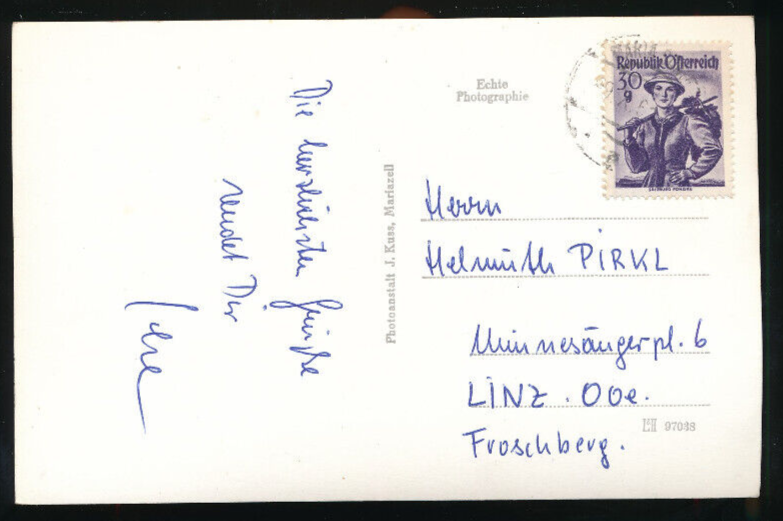 Die herzlichsten Grüsse
sendet Dir
Echte
Photographie
Photoanstalt J. Kuss, Mariazell
MARIA
Republik Österreich
30
g
Herrn
Helmuth PIRKL
Minnesängerpl. 6
LINZ. Ooe.
Froschberg.
97038